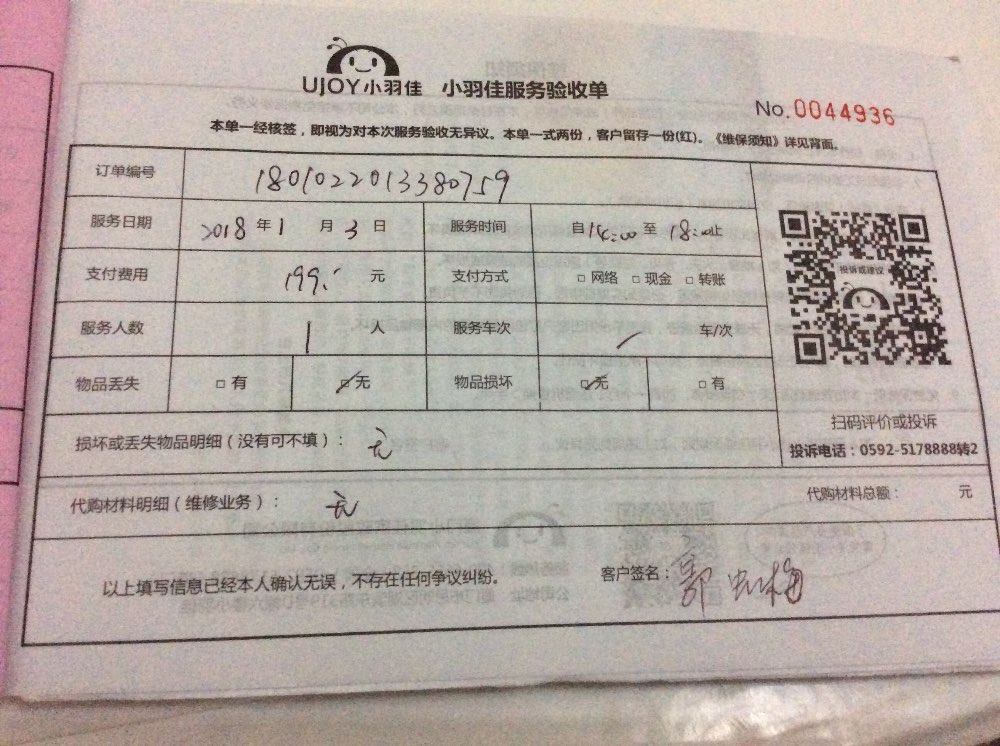 UJOY小羽佳 小羽佳服务验收单
No.0044936
本单一经核签，即视为对本次服务验收无异议。本单一式两份，客户留存一份(红)。《维保须知》详见背面。
订单编号 1801022013380759
服务日期 2018年1月3日 服务时间 自14:00至18:00止
支付费用 199. 元 支付方式 □网络 □现金 □转账
投诉或建议
服务人数 1 人 服务车次 / 车/次
物品丢失 □有 ☑无 物品损坏 ☑无 □有
扫码评价或投诉
投诉电话：0592-5178888转2
损坏或丢失物品明细（没有可不填）： 无
代购材料明细（维修业务）： 无 代购材料总额： 元
以上填写信息已经本人确认无误，不存在任何争议纠纷。 客户签名：郭